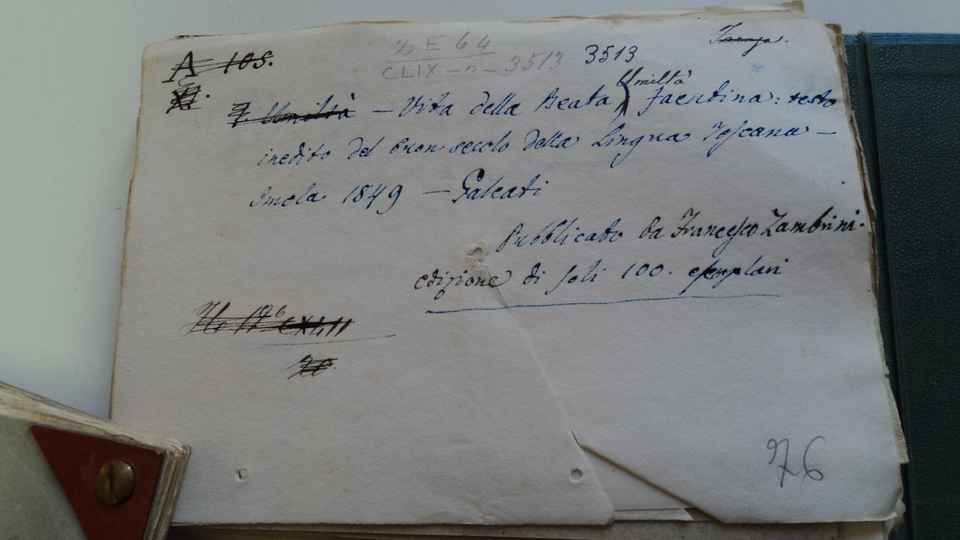 A 105.
2 E 64
CLIX - n - 3513
3513
XI.
7 Umiltà — Vita della Beata Umiltà Faentina: testo
inedito del buon secolo della Lingua Toscana —
Imola 1849 — Galeati
Pubblicato da Francesco Zambrini.
edizione di soli 100. esemplari
76